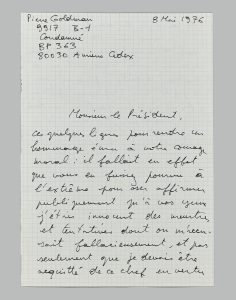 Pierre Goldman
9917 B-1
Condamné
BP 363
80030 Amiens Cedex
8 Mai 1976
Monsieur le Président,
ces quelques lignes pour rendre un
hommage ému à votre courage
moral : il fallait en effet
que vous en fussiez pourvu à
l'extrême pour oser affirmer
publiquement qu'à vos yeux
j'étais innocent des meurtres
et tentatives dont on m'accu-
sait fallacieusement, et pas
seulement que je devais être
acquitté de ce chef en vertu